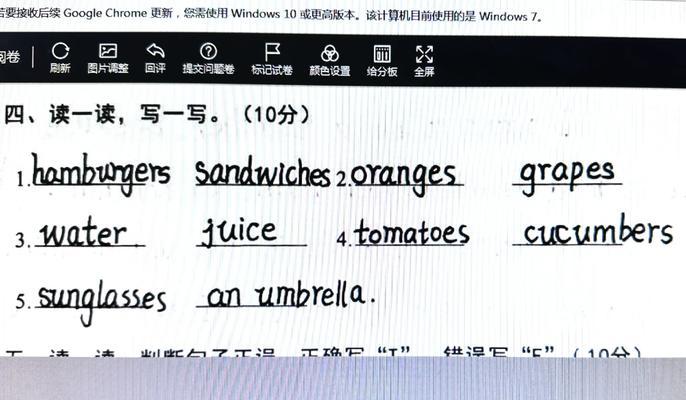 若要接收后续 Google Chrome 更新，您需使用 Windows 10 或更高版本。该计算机目前使用的是 Windows 7。
阅卷 刷新 图片调整 回评 提交问题卷 标记试卷 颜色设置 给分板 全屏
四、读一读，写一写。（10分）
1. hamburgers sandwiches 2. oranges grapes
3. water juice 4. tomatoes cucumbers
5. sunglasses an umbrella.
五、读一读，判断句子正误，正确写“T”，错误写“F”（10分）